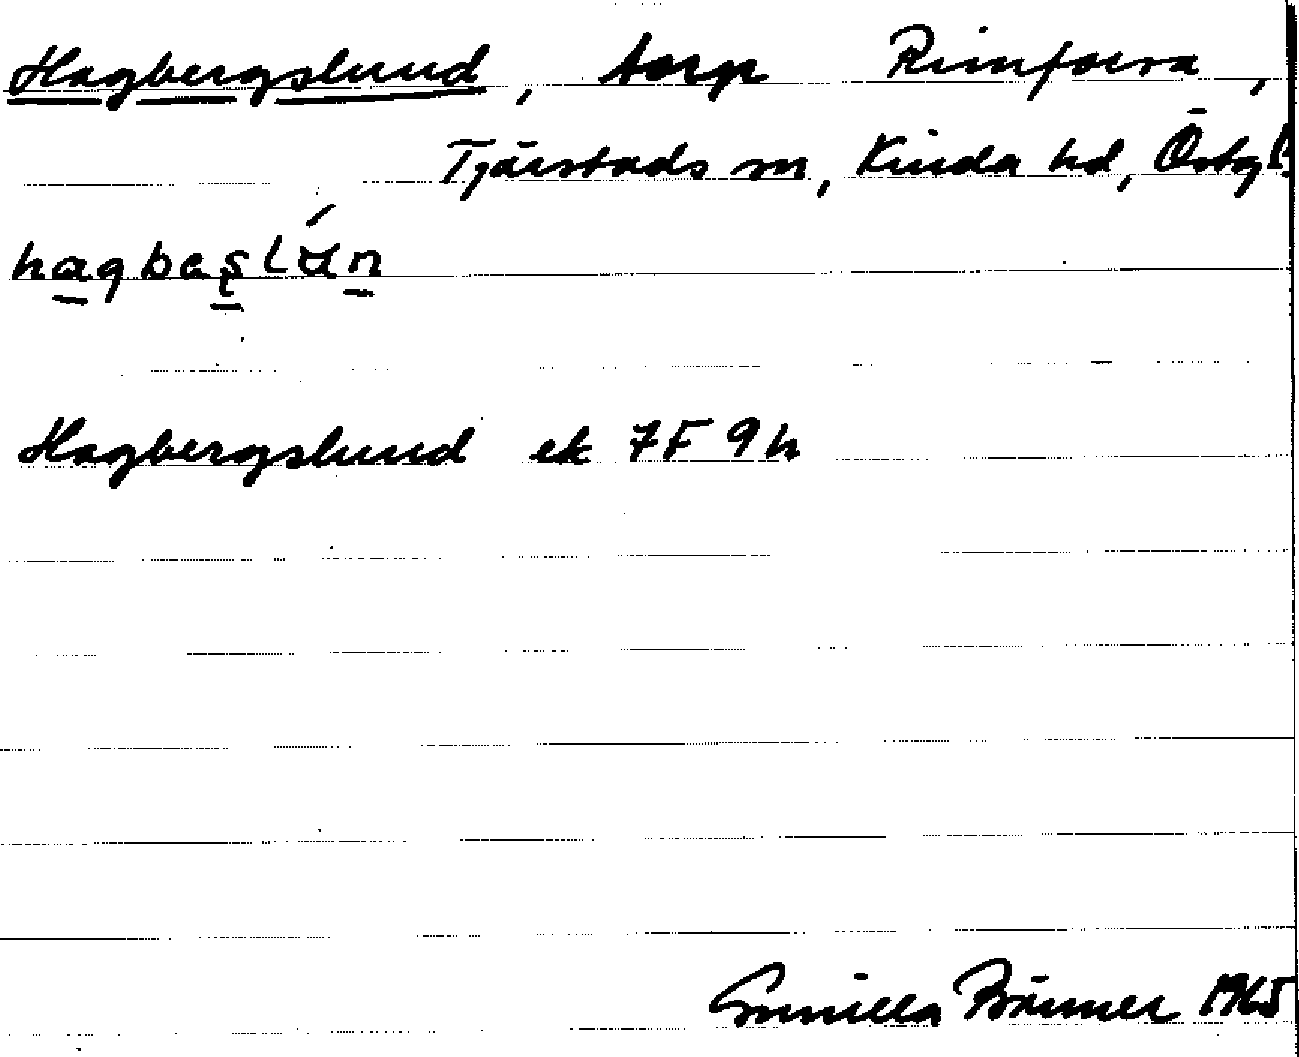 Hagbergslund, torp Rimforsa,
Tjärstads sn, Kinda hd, Östg
Hagbergslund ek 7F 9h
Gunilla Bränner 1965